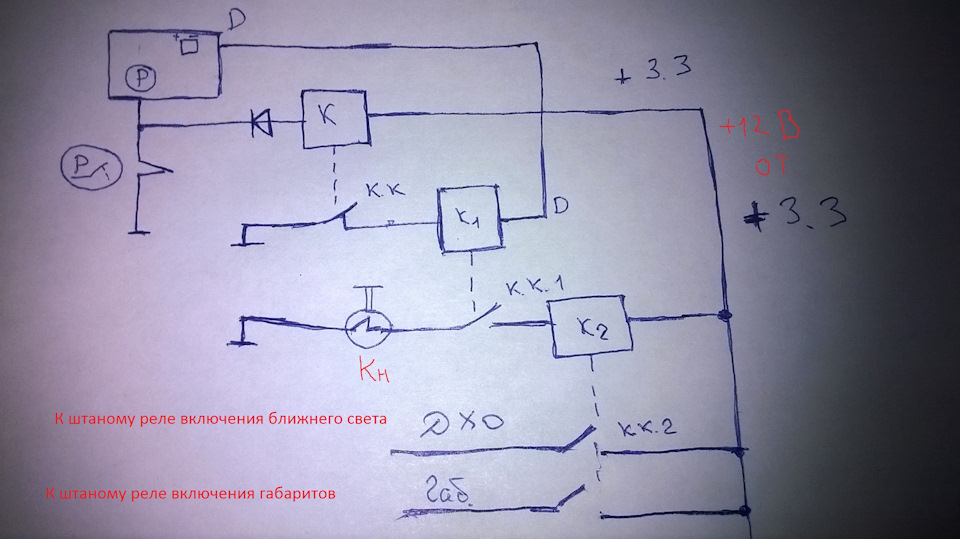 D
P
+ 3.3
K
+12 В
от
P
+ 3.3
К.К
K1
D
К.К.1
K2
Кн
К штаному реле включения ближнего света
ДХО
КК.2
К штаному реле включения габаритов
Габ.